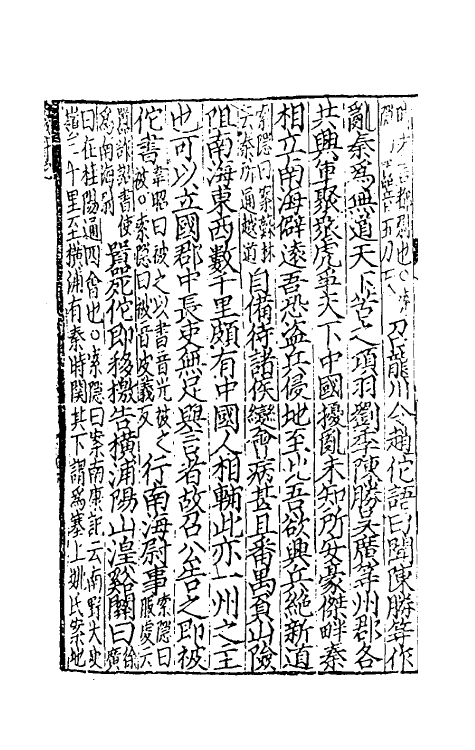 召龍川令趙佗語曰聞陳勝等作
亂秦爲無道天下苦之項羽劉季陳勝吳廣等州郡各
共興軍聚衆虎爭天下中國擾亂未知所安豪傑畔秦
相立南海僻遠吾恐盜兵侵地至此吾欲興兵絶新道
索隱曰案蘇林云秦所通越道自備待諸侯變會病甚且番禺負山險
阻南海東西數千里頗有中國人相輔此亦一州之主
也可以立國郡中長吏無足與言者故召公告之即被
佗書韋昭曰被之以書音光被之被○索隱曰被音皮義反行南海尉事索隱曰服虔云
嚻詐詔書使爲南海尉嚻死佗即移檄告橫浦陽山湟谿關曰徐廣
曰在桂陽通四會也○索隱曰案南康記云南野大庾
嶺三十里至橫浦有秦時關其下謂爲塞上姚氏案地